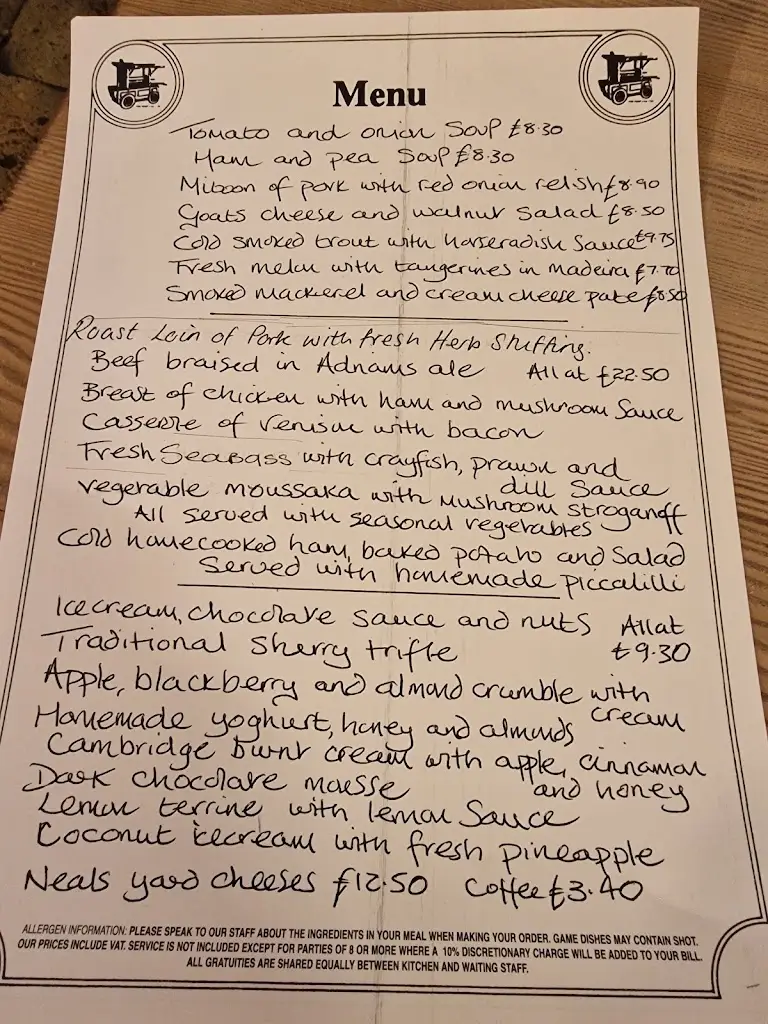 Menu
Tomato and onion Soup £8.30
Ham and pea Soup £8.30
of pork with red onion relish £8.90
Goats cheese and walnut Salad £8.50
Cold smoked trout with horseradish Sauce £9.75
Fresh melon with tangerines in madeira £7.70
Smoked mackerel and cream cheese pate £8.50
Roast Loin of Pork with fresh Herb Stuffing.
Beef braised in Adnams ale All at £22.50
Breast of chicken with ham and mushroom Sauce
Casserole of venison with bacon
Fresh Seabass with crayfish, prawn and
dill Sauce
vegetable moussaka with mushroom stroganoff
All served with seasonal vegetables
Cold homecooked ham, baked potato and Salad
Served with homemade piccalilli
Icecream, chocolate sauce and nuts All at
Traditional Sherry trifle £9.30
Apple, blackberry and almond crumble with
cream
Homemade yoghurt, honey and almonds
Cambridge burnt cream with apple, cinnamon
and honey
Dark chocolate mousse
Lemon terrine with lemon Sauce
Coconut icecream with fresh pineapple
Neals yard cheeses £12.50 Coffee £3.40
ALLERGEN INFORMATION: PLEASE SPEAK TO OUR STAFF ABOUT THE INGREDIENTS IN YOUR MEAL WHEN MAKING YOUR ORDER. GAME DISHES MAY CONTAIN SHOT.
OUR PRICES INCLUDE VAT. SERVICE IS NOT INCLUDED EXCEPT FOR PARTIES OF 8 OR MORE WHERE A 10% DISCRETIONARY CHARGE WILL BE ADDED TO YOUR BILL.
ALL GRATUITIES ARE SHARED EQUALLY BETWEEN KITCHEN AND WAITING STAFF.